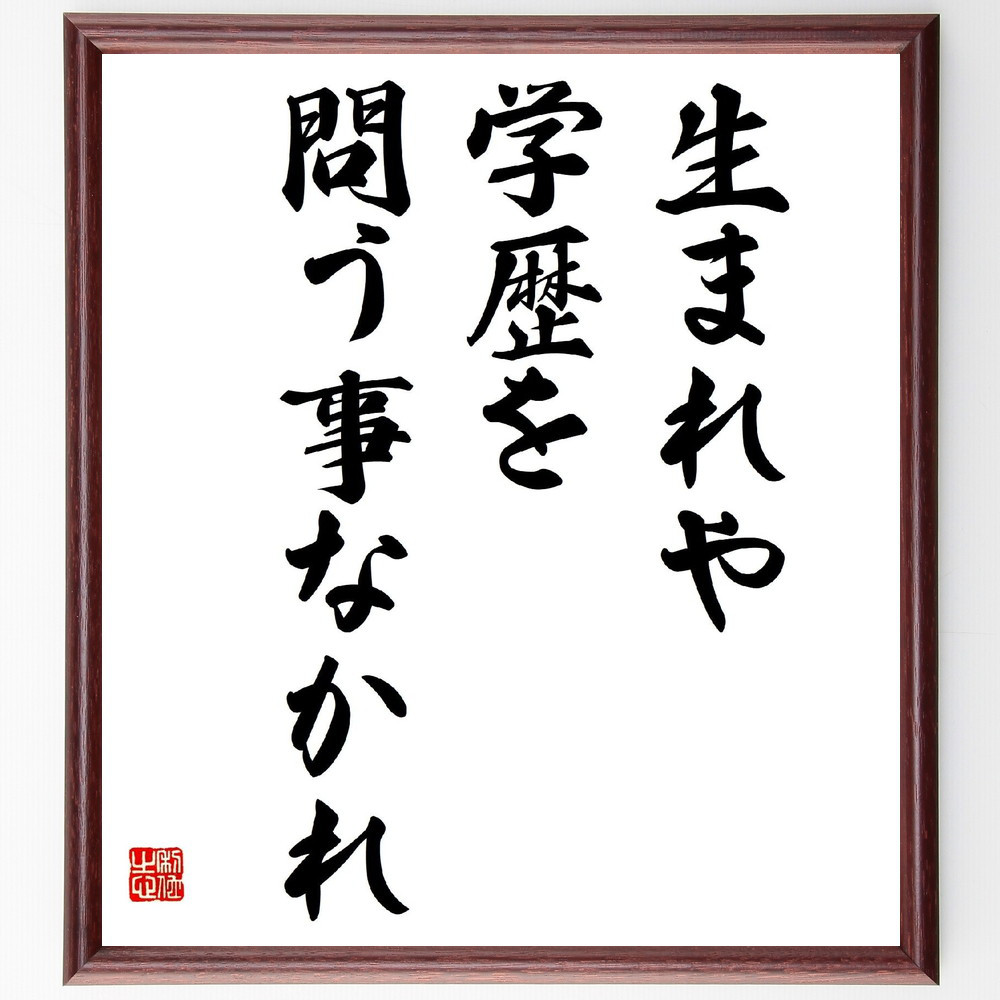 生まれや
学歴を
問う事なかれ